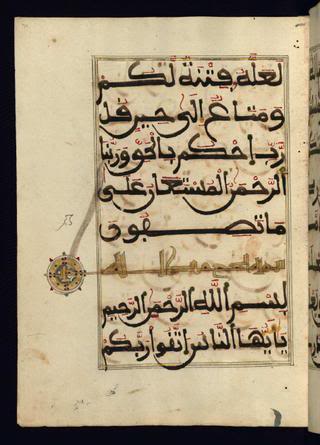 لعله فتنة لكم
ومتاع الى حين قل
رب احكم بالحق وربنا
الرحمن المستعان على
ما تصفون
بسم الله الرحمن الرحيم
يايها الناس اتقوا ربكم